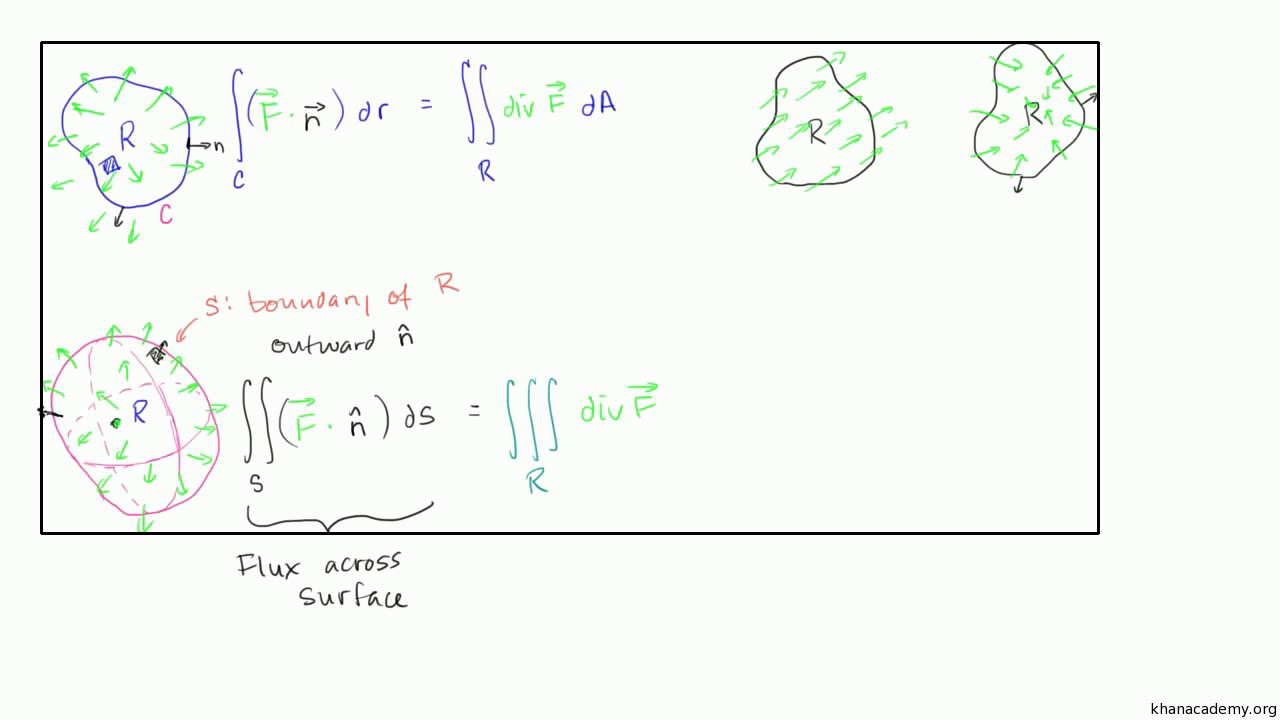 R
n
C
∫_C (F⃗ · n⃗) dr = ∬_R div F⃗ dA
R
R
S: boundary of R
outward n̂
R
∬_S (F⃗ · n̂) dS = ∭_R div F⃗
Flux across
surface
khanacademy.org